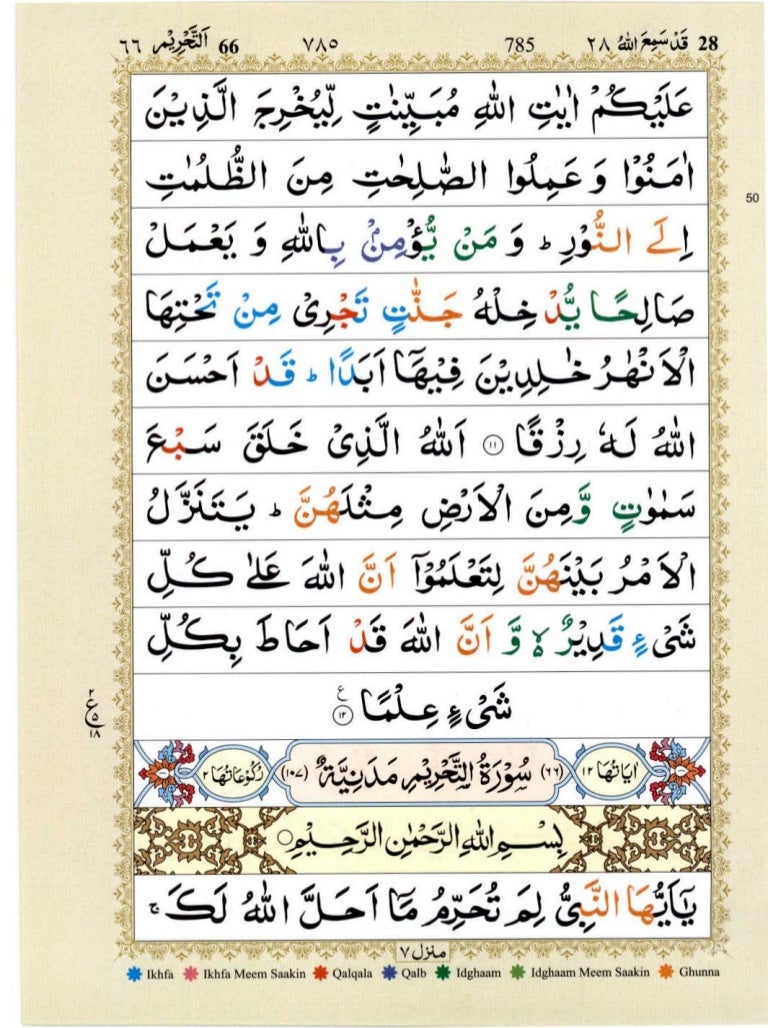 اَلتَّحْرِيْم ٦٦ 66 ٧٨٥ 785 قَدْ سَمِعَ اللهُ ٢٨ 28
عَلَيْكُمْ اٰيٰتِ اللّٰهِ مُبَيِّنٰتٍ لِّيُخْرِجَ الَّذِيْنَ
اٰمَنُوْا وَ عَمِلُوا الصّٰلِحٰتِ مِنَ الظُّلُمٰتِ
50
اِلَى النُّوْرِ ؕ وَ مَنْ يُّؤْمِنْۢ بِاللّٰهِ وَ يَعْمَلْ
صَالِحًا يُّدْخِلْهُ جَنّٰتٍ تَجْرِیْ مِنْ تَحْتِهَا
الْاَنْهٰرُ خٰلِدِيْنَ فِيْهَاۤ اَبَدًا ؕ قَدْ اَحْسَنَ
اللّٰهُ لَهٗ رِزْقًا ۝۱۱ اَللّٰهُ الَّذِیْ خَلَقَ سَبْعَ
سَمٰوٰتٍ وَّ مِنَ الْاَرْضِ مِثْلَهُنَّ ؕ يَتَنَزَّلُ
الْاَمْرُ بَيْنَهُنَّ لِتَعْلَمُوْۤا اَنَّ اللّٰهَ عَلٰی كُلِّ
شَیْءٍ قَدِيْرٌ ۙ۬ وَّ اَنَّ اللّٰهَ قَدْ اَحَاطَ بِكُلِّ
شَیْءٍ عِلْمًا ۝۱۲ ع
٢
ع
٥
١٨
اٰيَاتُهَا ١٢ (٦٦) سُوْرَةُ التَّحْرِيْمِ مَدَنِيَّةٌ (١٠٧) رُكُوْعَاتُهَا ٢
بِسْمِ اللّٰهِ الرَّحْمٰنِ الرَّحِيْمِ
يٰۤاَيُّهَا النَّبِیُّ لِمَ تُحَرِّمُ مَاۤ اَحَلَّ اللّٰهُ لَكَ ۚ
منزل ٧
Ikhfa Ikhfa Meem Saakin Qalqala Qalb Idghaam Idghaam Meem Saakin Ghunna